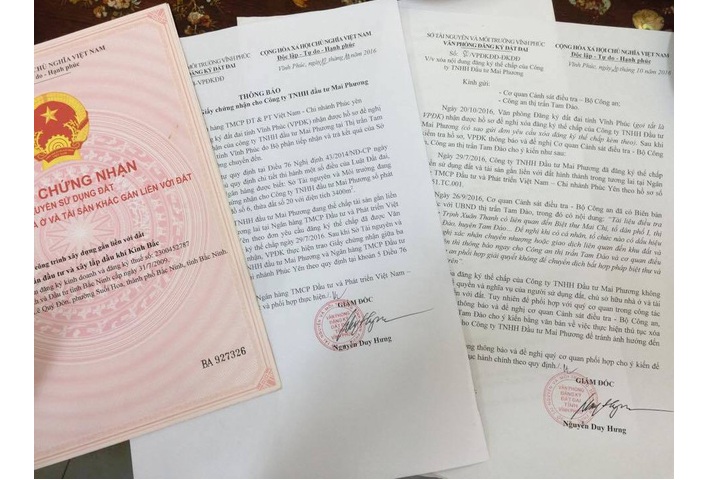 HỦ NGHĨA VIỆT NAM
do - Hạnh phúc
CHỨNG NHẬN
UYỀN SỬ DỤNG ĐẤT
Ở VÀ TÀI SẢN KHÁC GẮN LIỀN VỚI ĐẤT
công trình xây dựng gắn liền với đất
đầu tư và xây lắp dầu khí Kinh Bắc
đăng ký kinh doanh và đăng ký thuế số: 2300452787
và Đầu tư tỉnh Bắc Ninh cấp ngày 31/7/2009.
Lê Quý Đôn, phường Suối Hoa, thành phố Bắc Ninh, tỉnh Bắc Ninh,
BA 927326
MÔI TRƯỜNG VĨNH PHÚC
ĐĂNG KÝ ĐẤT ĐAI
/VPĐKĐĐ
CỘNG HÒA XÃ HỘI CHỦ NGHĨA VIỆT NAM
Độc lập - Tự do - Hạnh phúc
Vĩnh Phúc, ngày tháng 10 năm 2016
THÔNG BÁO
Giấy chứng nhận cho Công ty TNHH đầu tư Mai Phương
hàng TMCP ĐT & PT Việt Nam – Chi nhánh Phúc yên
ký đất đai tỉnh Vĩnh Phúc (VPĐK) nhận được hồ sơ đề nghị
nhận của công ty TNHH đầu tư Mai Phương tại Thị trấn Tam
Vĩnh Phúc do Bộ phận tiếp nhận và trả kết quả của Sở
chuyển đến.
quy định tại Điều 76 Nghị định 43/2014/NĐ-CP ngày
quy định chi tiết thi hành một số điều của Luật Đất đai,
ngân hàng được biết: Sở Tài nguyên và Môi trường đang
nhận cho Công ty TNHH đầu tư Mai Phương số phát
6, thửa đất số 20 với diện tích 3400m².
TNHH đầu tư Mai Phương đang thế chấp tài sản gắn liền
tại Ngân hàng TMCP Đầu tư và Phát triển Việt
theo đơn yêu cầu đăng ký thế chấp đã được Văn
ngày 29/7/2016. Sau khi Sở Tài nguyên và
nhận, VPĐK thực hiện trao Giấy chứng nhận giữa ba
đầu tư Mai Phương và Ngân hàng TMCP
nhánh Phúc Yên theo quy định tại khoản 5 Điều
Ngân hàng TMCP Đầu tư và Phát triển Việt Nam –
và phối hợp thực hiện./.
GIÁM ĐỐC
Nguyễn Duy Hưng
SỞ TÀI NGUYÊN VÀ MÔI TRƯỜNG VĨNH PHÚC
VĂN PHÒNG ĐĂNG KÝ ĐẤT ĐAI
/VPĐKĐĐ-ĐKĐĐ
V/v xóa nội dung đăng ký thế chấp của Công
ty TNHH Đầu tư Mai Phương
CỘNG HÒA XÃ HỘI CHỦ NGHĨA VIỆT NAM
Độc lập - Tự do - Hạnh phúc
Vĩnh Phúc, ngày tháng 10 năm 2016
Kính gửi:
- Cơ quan Cảnh sát điều tra – Bộ Công an;
- Công an thị trấn Tam Đảo
Ngày 20/10/2016, Văn phòng Đăng ký đất đai Vĩnh Phúc (gọi tắt là
VPĐK) nhận được hồ sơ đề nghị xóa đăng ký thế chấp của Công ty TNHH Đầu tư
Mai Phương (có sao gửi đơn yêu cầu xóa đăng ký thế chấp kèm theo). Sau khi
kiểm tra hồ sơ, VPĐK đề nghị Cơ quan Cảnh sát điều tra - Bộ Công an,
thị trấn Tam Đảo cho ý kiến như sau:
Ngày 29/7/2016, Công ty TNHH Đầu tư Mai Phương đã đăng ký thế chấp
tài sản gắn liền với đất hình thành trong tương lai tại Ngân
Đầu tư và Phát triển Việt Nam – Chi nhánh Phúc Yên theo hồ sơ số
1.TC.001.
26/9/2016, Cơ quan Cảnh sát điều tra - Bộ Công an đã có Biên bản
việc với UBND thị trấn Tam Đảo, trong đó có nội dung: "Tài liệu điều tra
Trịnh Xuân Thanh có liên quan đến Biệt thự Mai Chi, tổ dân phố 1, thị
Đảo, huyện Tam Đảo... Đề nghị khi có cá nhân, tổ chức nào có dấu hiệu
nghị xác nhận chuyển nhượng hoặc giao dịch liên quan đến khu đất và
thị thông báo ngay cho Công an thị trấn Tam Đảo và cơ quan điều
an phối hợp giải quyết không để chuyển dịch bất hợp pháp biệt thự và
viên"
đăng ký thế chấp của Công ty TNHH Đầu tư Mai Phương không
quyền và nghĩa vụ của người sử dụng đất, chủ sở hữu nhà ở và tài
với đất. Tuy nhiên để phối hợp với quý cơ quan trong công tác
thông báo và đề nghị cơ quan Cảnh sát điều tra - Bộ Công an,
Tam Đảo cho ý kiến bằng văn bản về việc thực hiện thủ tục xóa
cho Công ty TNHH Đầu tư Mai Phương để tránh ảnh hưởng đến
thông báo và đề nghị quý cơ quan phối hợp cho ý kiến để
tục hành chính theo quy định./.
GIÁM ĐỐC
Nguyễn Duy Hưng